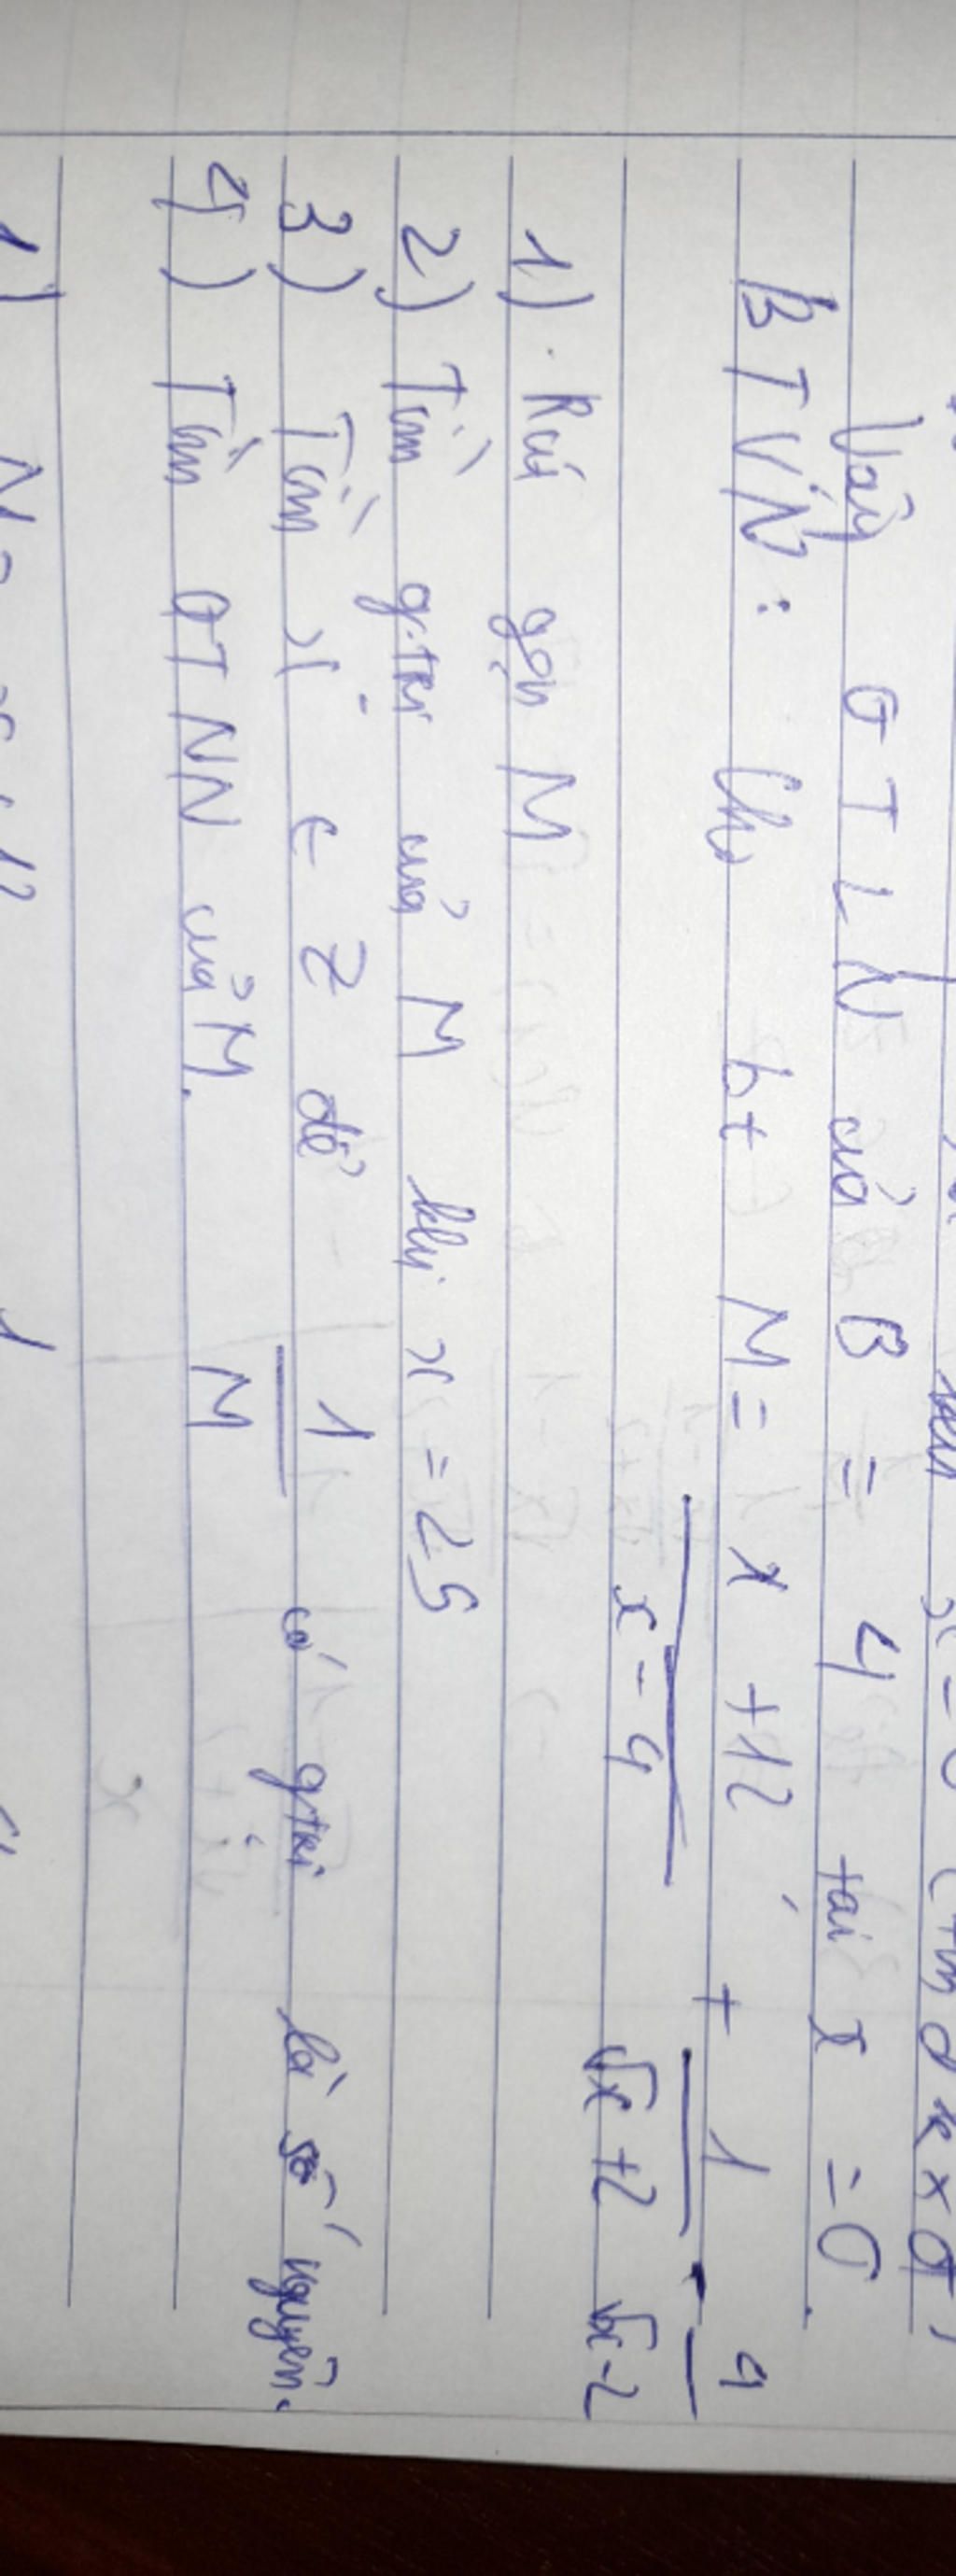 Vậy GTLN của B = 4 tại x = 0.
BTVN: Cho bt M = x + 12 + 1 - 4
x - 4 √x + 2 √x - 2
1) Rút gọn M
2) Tìm g.trị của M khi x = 25
3) Tìm x ∈ Z để 1 có gtrị là số nguyên.
M
4) Tìm GTNN của M.